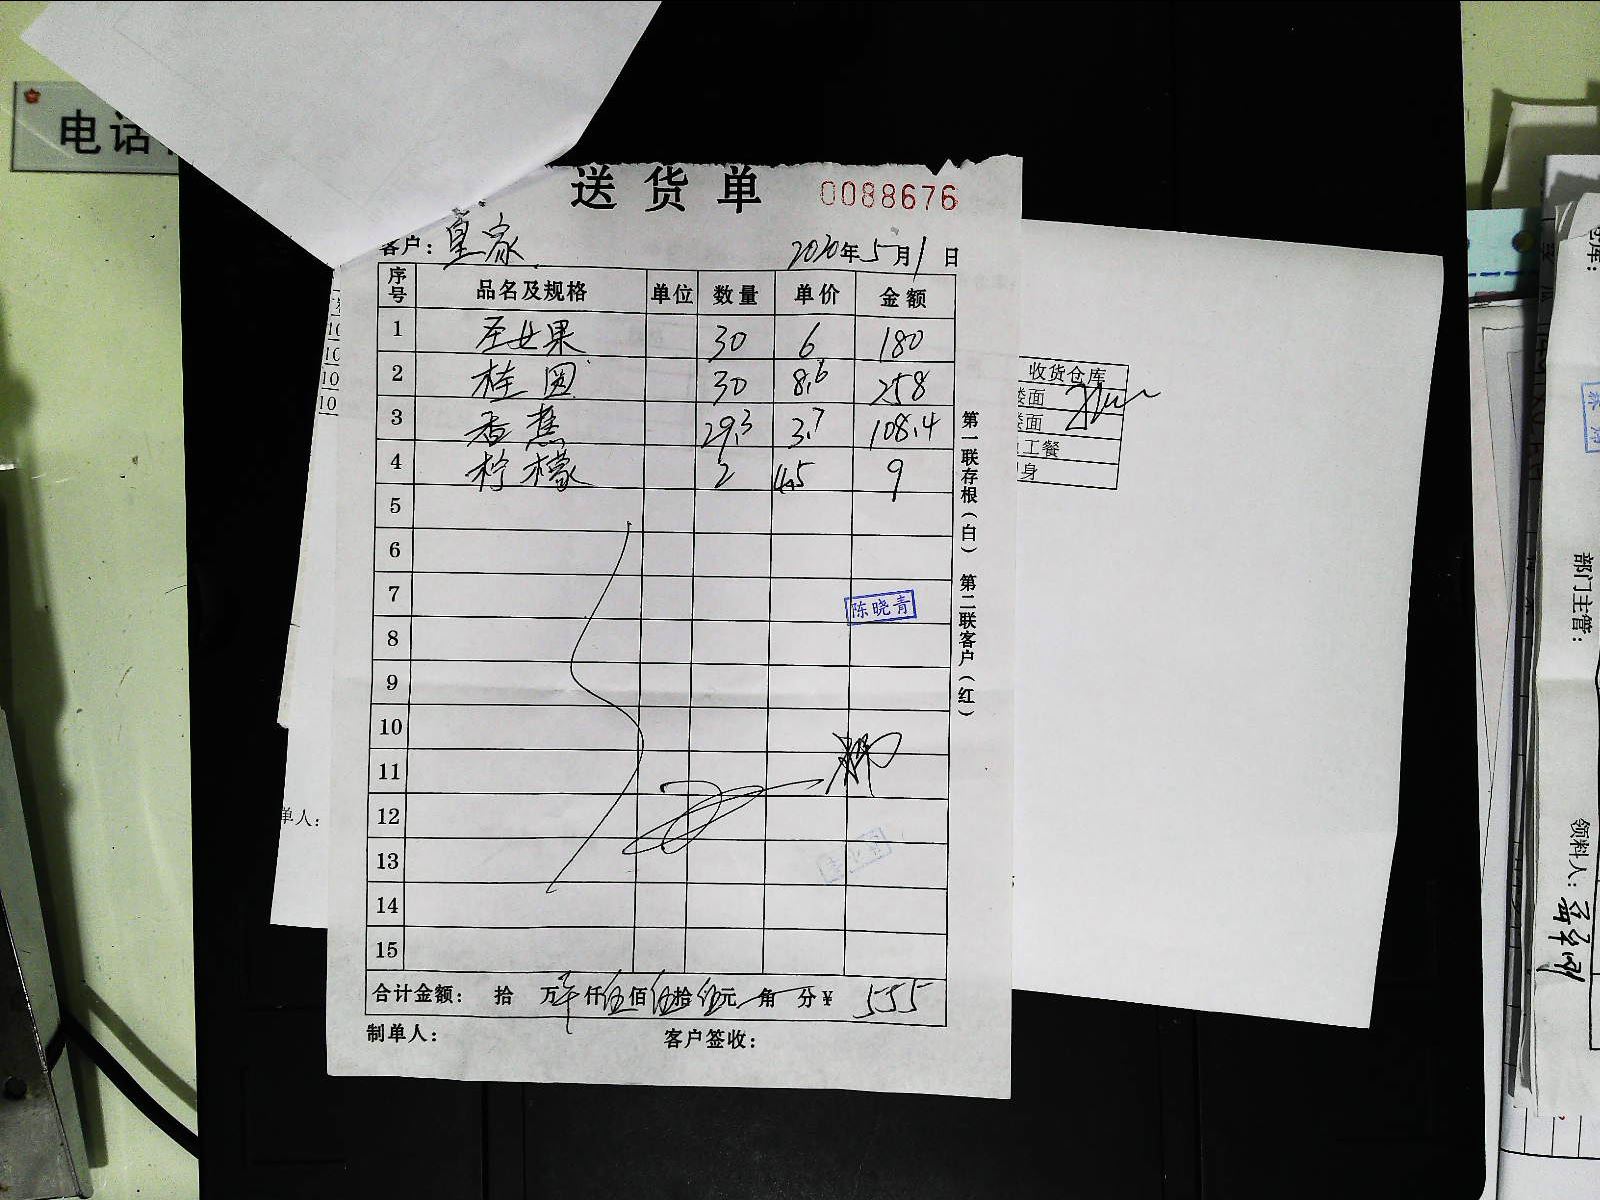 电话
送货单 0088676
客户：皇家 2020年5月1日
序号 品名及规格 单位 数量 单价 金额
1 圣女果 30 6 180
2 桂圆 30 8.6 258
3 香蕉 29.3 3.7 108.4
4 柠檬 2 4.5 9
5
6
7
陈晓青
8
9
10
11
12
13
14
15
合计金额： 拾 万 仟伍佰伍拾伍元 角 分￥ 555
制单人： 客户签收：
第一联存根（白） 第二联客户（红）
10
10
10
10
单人：
收货仓库
楼面
楼面
工餐
身
仓库：
部门主管：
领料人：